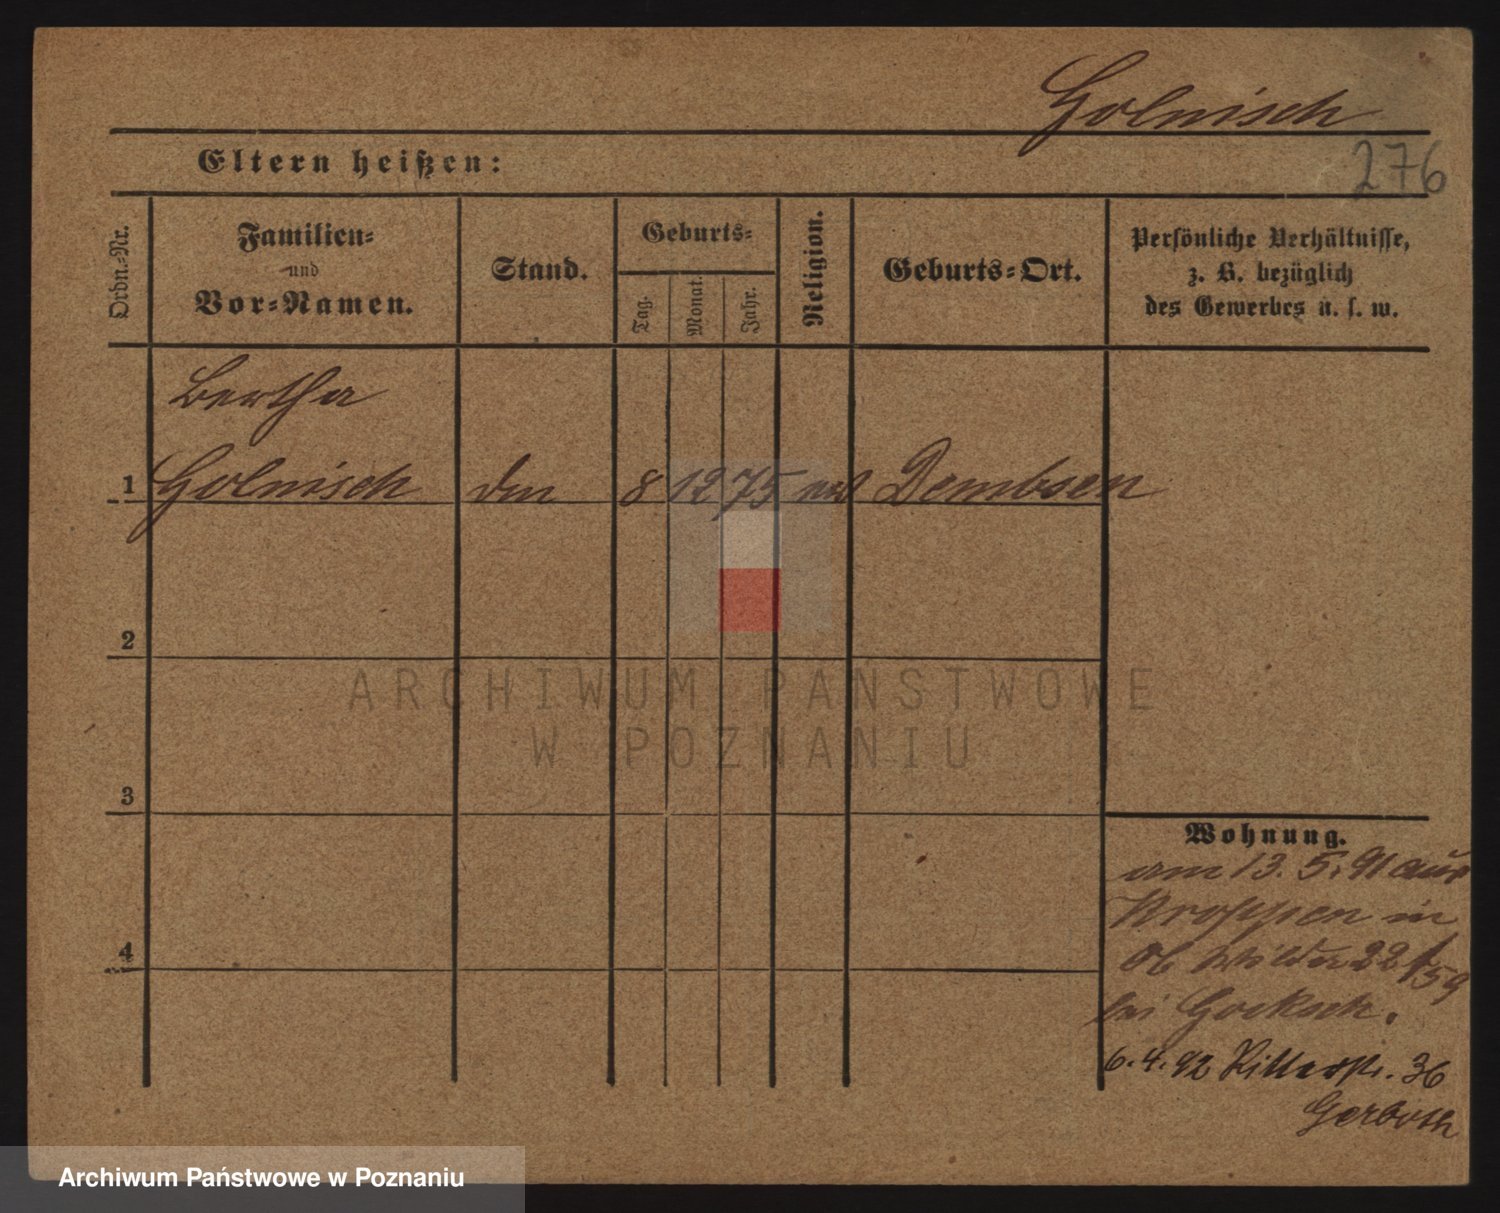 Golnisch
276
Eltern heißen:
Ordn.-Nr.
Familien-
und
Vor-Namen.
Stand.
Geburts-
Tag.
Monat.
Jahr.
Religion.
Geburts-Ort.
Persönliche Verhältnisse,
z. B. bezüglich
des Gewerbes u. s. w.
Bertha
1 Golnisch 8 12 75 Dembsen
2
3
4
Wohnung.
am 13. 5. 91 aus
in
Ob Wilda 22
bei
6. 4. 92 Ritterstr. 36
Gerboth
ARCHIWUM PAŃSTWOWE
W POZNANIU
Archiwum Państwowe w Poznaniu